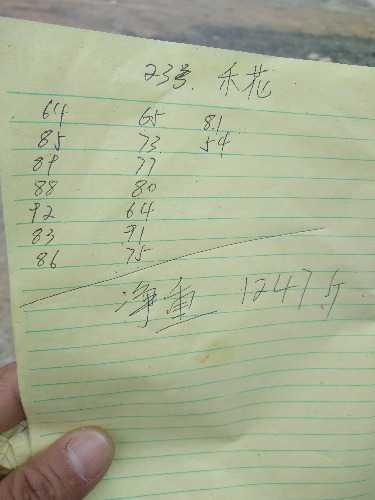 23号. 禾花
64 65 81
85 73 54
89 77
88 80
92 64
83 91
86 75
净重 1247斤